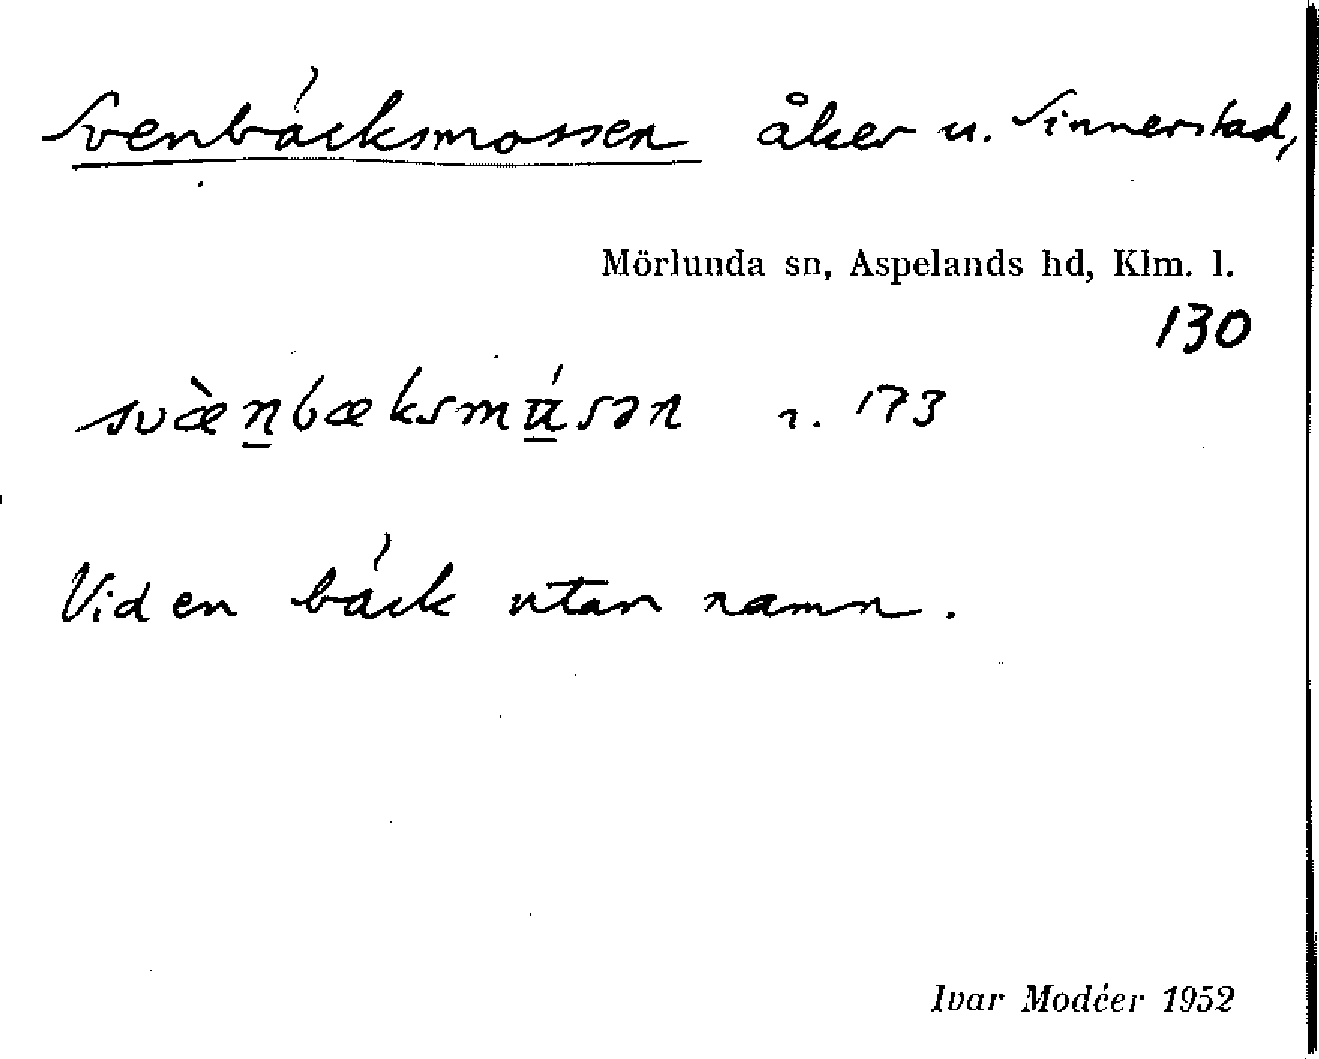 Svenbäcksmossen åker u. Sinnerstad,
Mörlunda sn, Aspelands hd, Klm. l.
130
svæ̀n̲bæksmú̲sən r. 173
Vid en bäck utan namn.
Ivar Modéer 1952